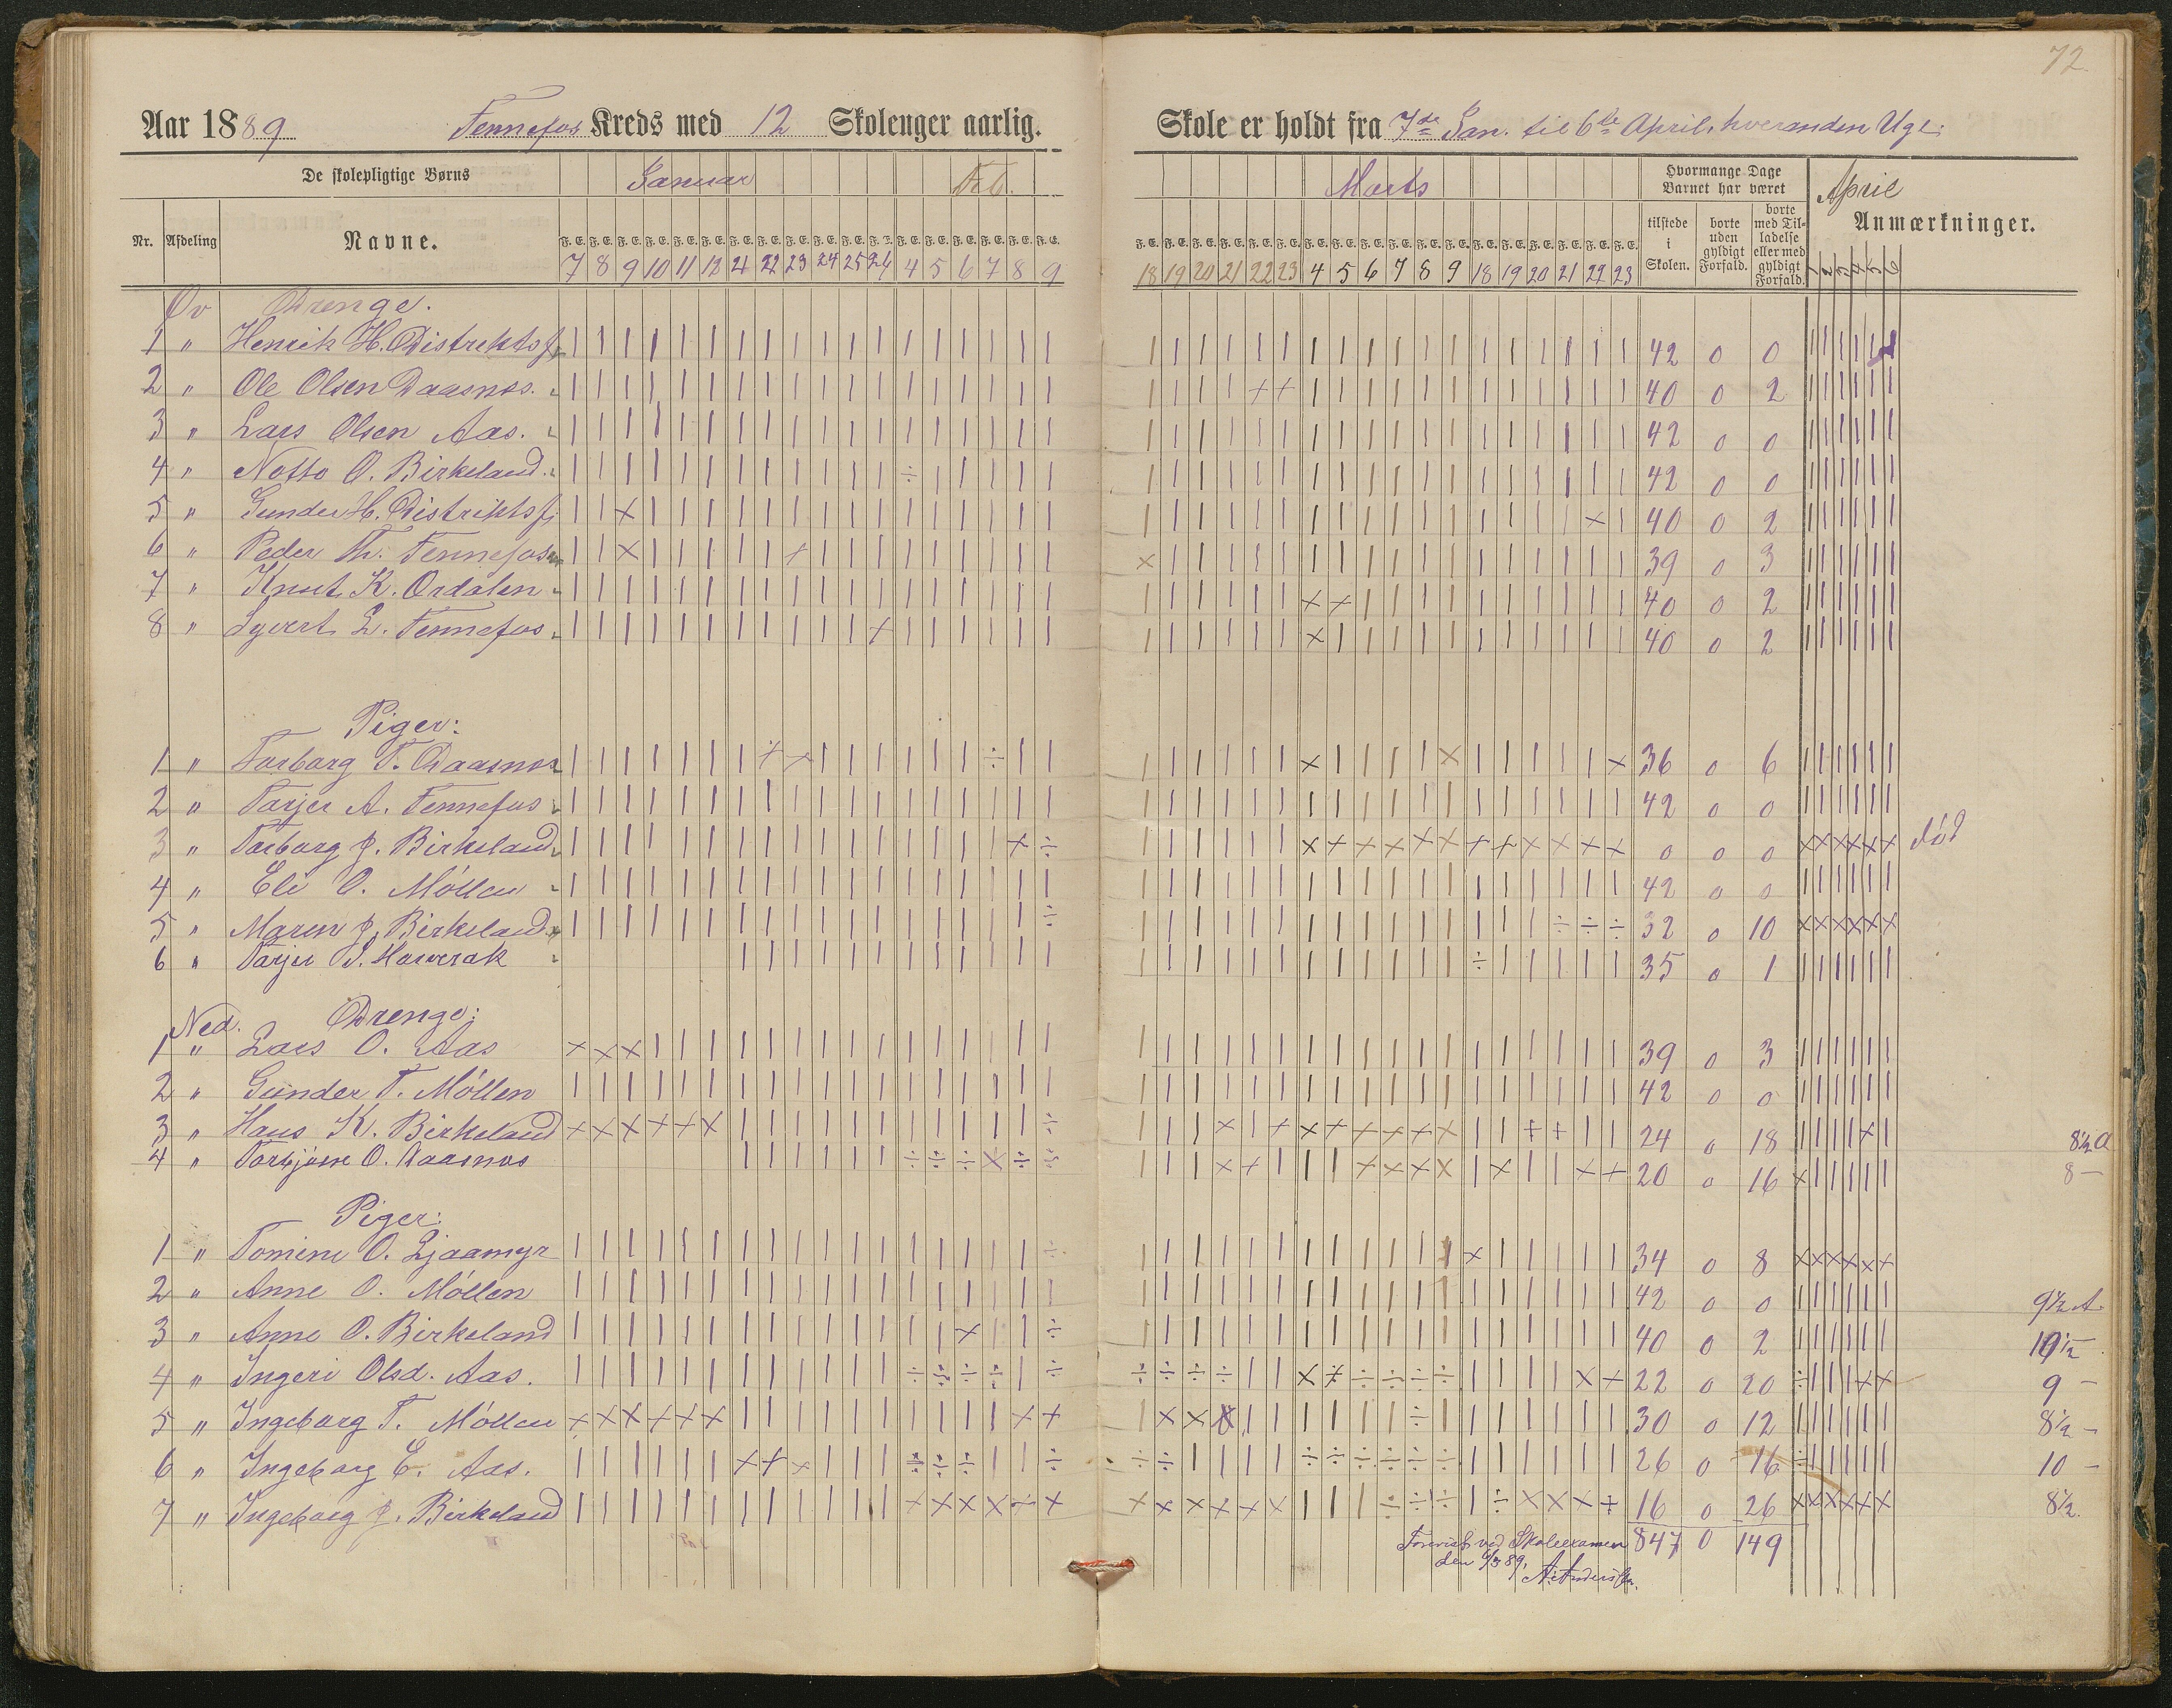 72.
Aar 1889 Fennefos Kreds med 12 Skoleuger aarlig.
Skole er holdt fra 7de Jan. til 6te April, hveranden Uge.
De skolepligtige Børns Januar Feb.
Marts Hvormange Dage Barnet har været April
Nr. Afdeling Navne. F. E. F. E. F. E. F. E. F. E. F. E. F. E. F. E. F. E. F. E. F. E. F. E. F. E. F. E. F. E. F. E. F. E. F. E.
7 8 9 10 11 12 21 22 23 24 25 26 4 5 6 7 8 9
F. E. F. E. F. E. F. E. F. E. F. E. F. E. F. E. F. E. F. E. F. E. F. E. F. E. F. E. F. E. F. E. F. E. F. E.
18 19 20 21 22 23 4 5 6 7 8 9 18 19 20 21 22 23
tilstede i Skolen. borte uden gyldigt Forfald. borte med Tilladelse eller med gyldigt Forfald. Anmærkninger.
1 2 3 4 5 6
Øv Drenge.
1 " Henrik H. Distriktsf. 42 0 0
2 " Ole Olsen Daasnes. 40 0 2
3 " Lars Olsen Aas. 42 0 0
4 " Notto O. Birkeland. 42 0 0
5 " Gunder H. Distriktsf. 40 0 2
6 " Peder Th. Fennefos 39 0 3
7 " Knut K. Ordalen 40 0 2
8 " Syvert L. Fennefos 40 0 2
Piger:
1 " Torborg T. Daasnes 36 0 6
2 " Tarjer A. Fennefos 42 0 0
3 " Torborg J. Birkeland 0 0 0 død
4 " Eli O. Móllen 42 0 0
5 " Maren J. Birkeland 32 0 10
6 " Tarjer S. Haverak 35 0 1
Ned. Drenge:
1 " Lars O. Aas 39 0 3
2 " Gunder T. Móllen 42 0 0
3 " Hans K. Birkeland 24 0 18 8½ A
4 " Torbjörn O. Daasnes 20 0 16 8 –
Piger:
1 " Tomine O. Ljaamyr 34 0 8
2 " Anne O. Móllen 42 0 0 9½ A
3 " Anne O. Birkeland 40 0 2 10½ –
4 " Ingeri Olsd. Aas. 22 0 20 9 –
5 " Ingeborg T. Móllen 30 0 12 8½ –
6 " Ingeborg E. Aas. 26 0 16 10 –
7 " Ingeborg J. Birkeland 16 0 26 8½
Forevist ved Skoleexamen 847 0 149
den 6/3 89,